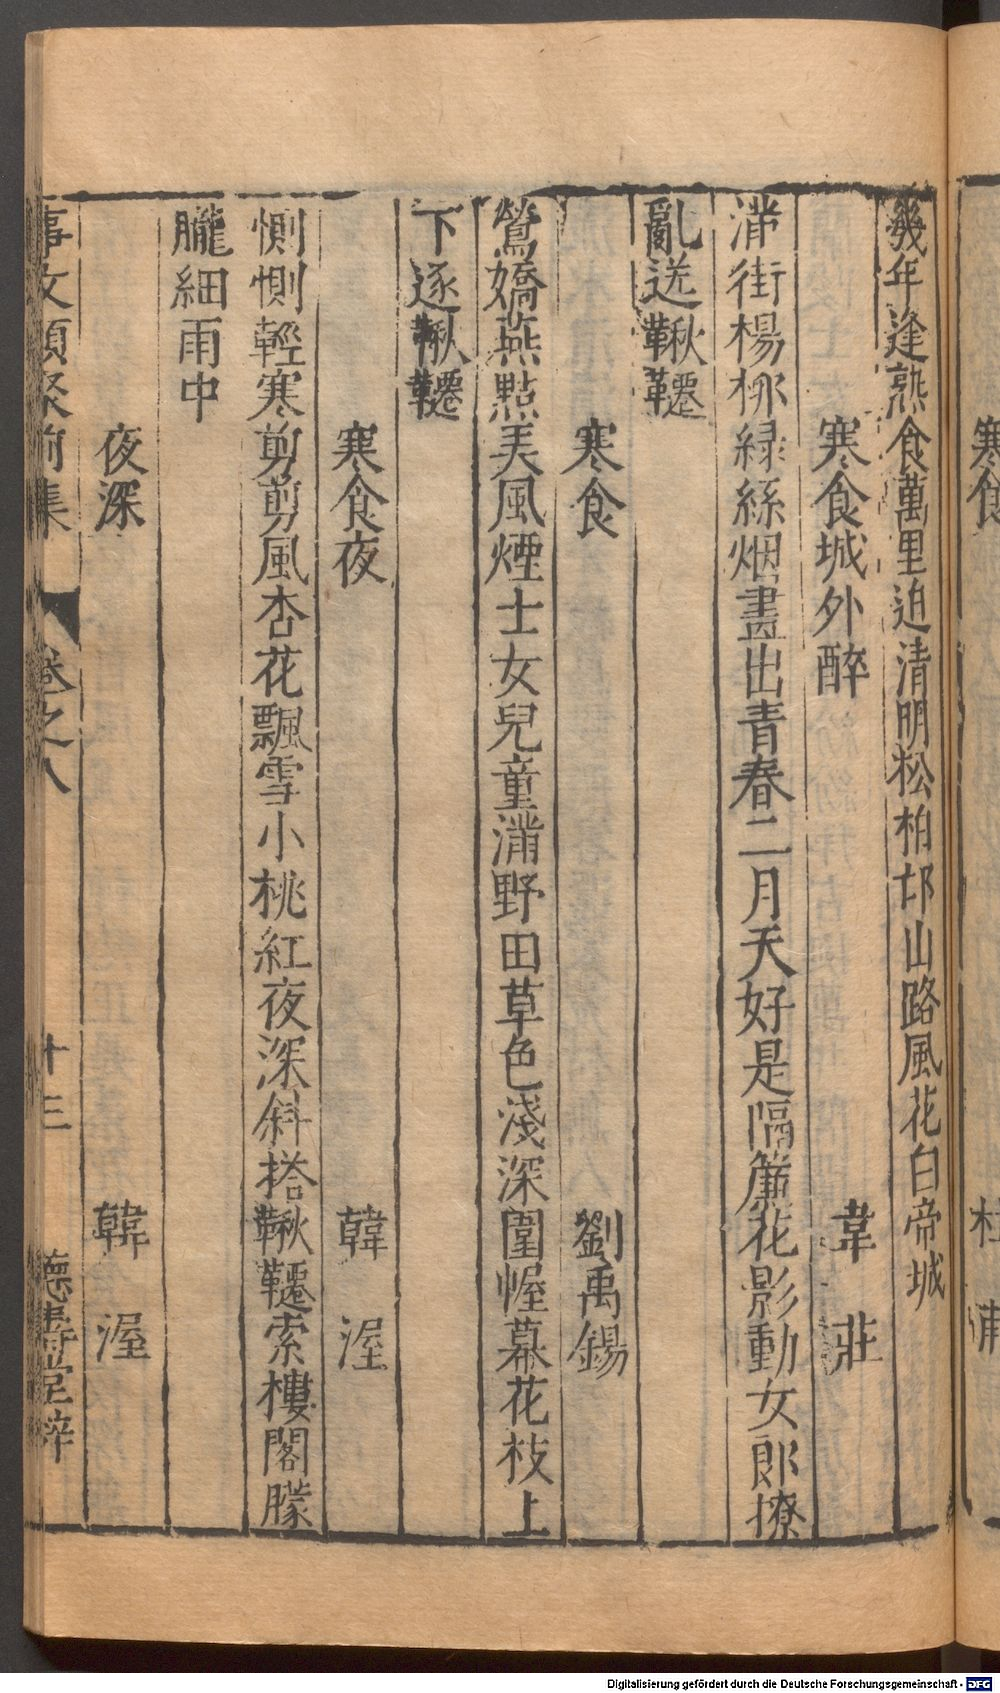 寒食
杜甫
幾年逢熟食萬里迫清明松柏邙山路風花白帝城
寒食城外醉
韋莊
滿街楊柳綠絲烟畫出青春二月天好是隔簾花影動女郎撩
亂送鞦韆
寒食
劉禹錫
鶯嬌燕點美風煙士女兒童滿野田草色淺深圍幄幕花枝上
下逐鞦韆
寒食夜
韓渥
惻惻輕寒剪剪風杏花飄雪小桃紅夜深斜搭鞦韆索樓閣朦
朧細雨中
夜深
韓渥
事文類聚前集
卷之八
十三
德壽堂梓
Digitalisierung gefördert durch die Deutsche Forschungsgemeinschaft - DFG